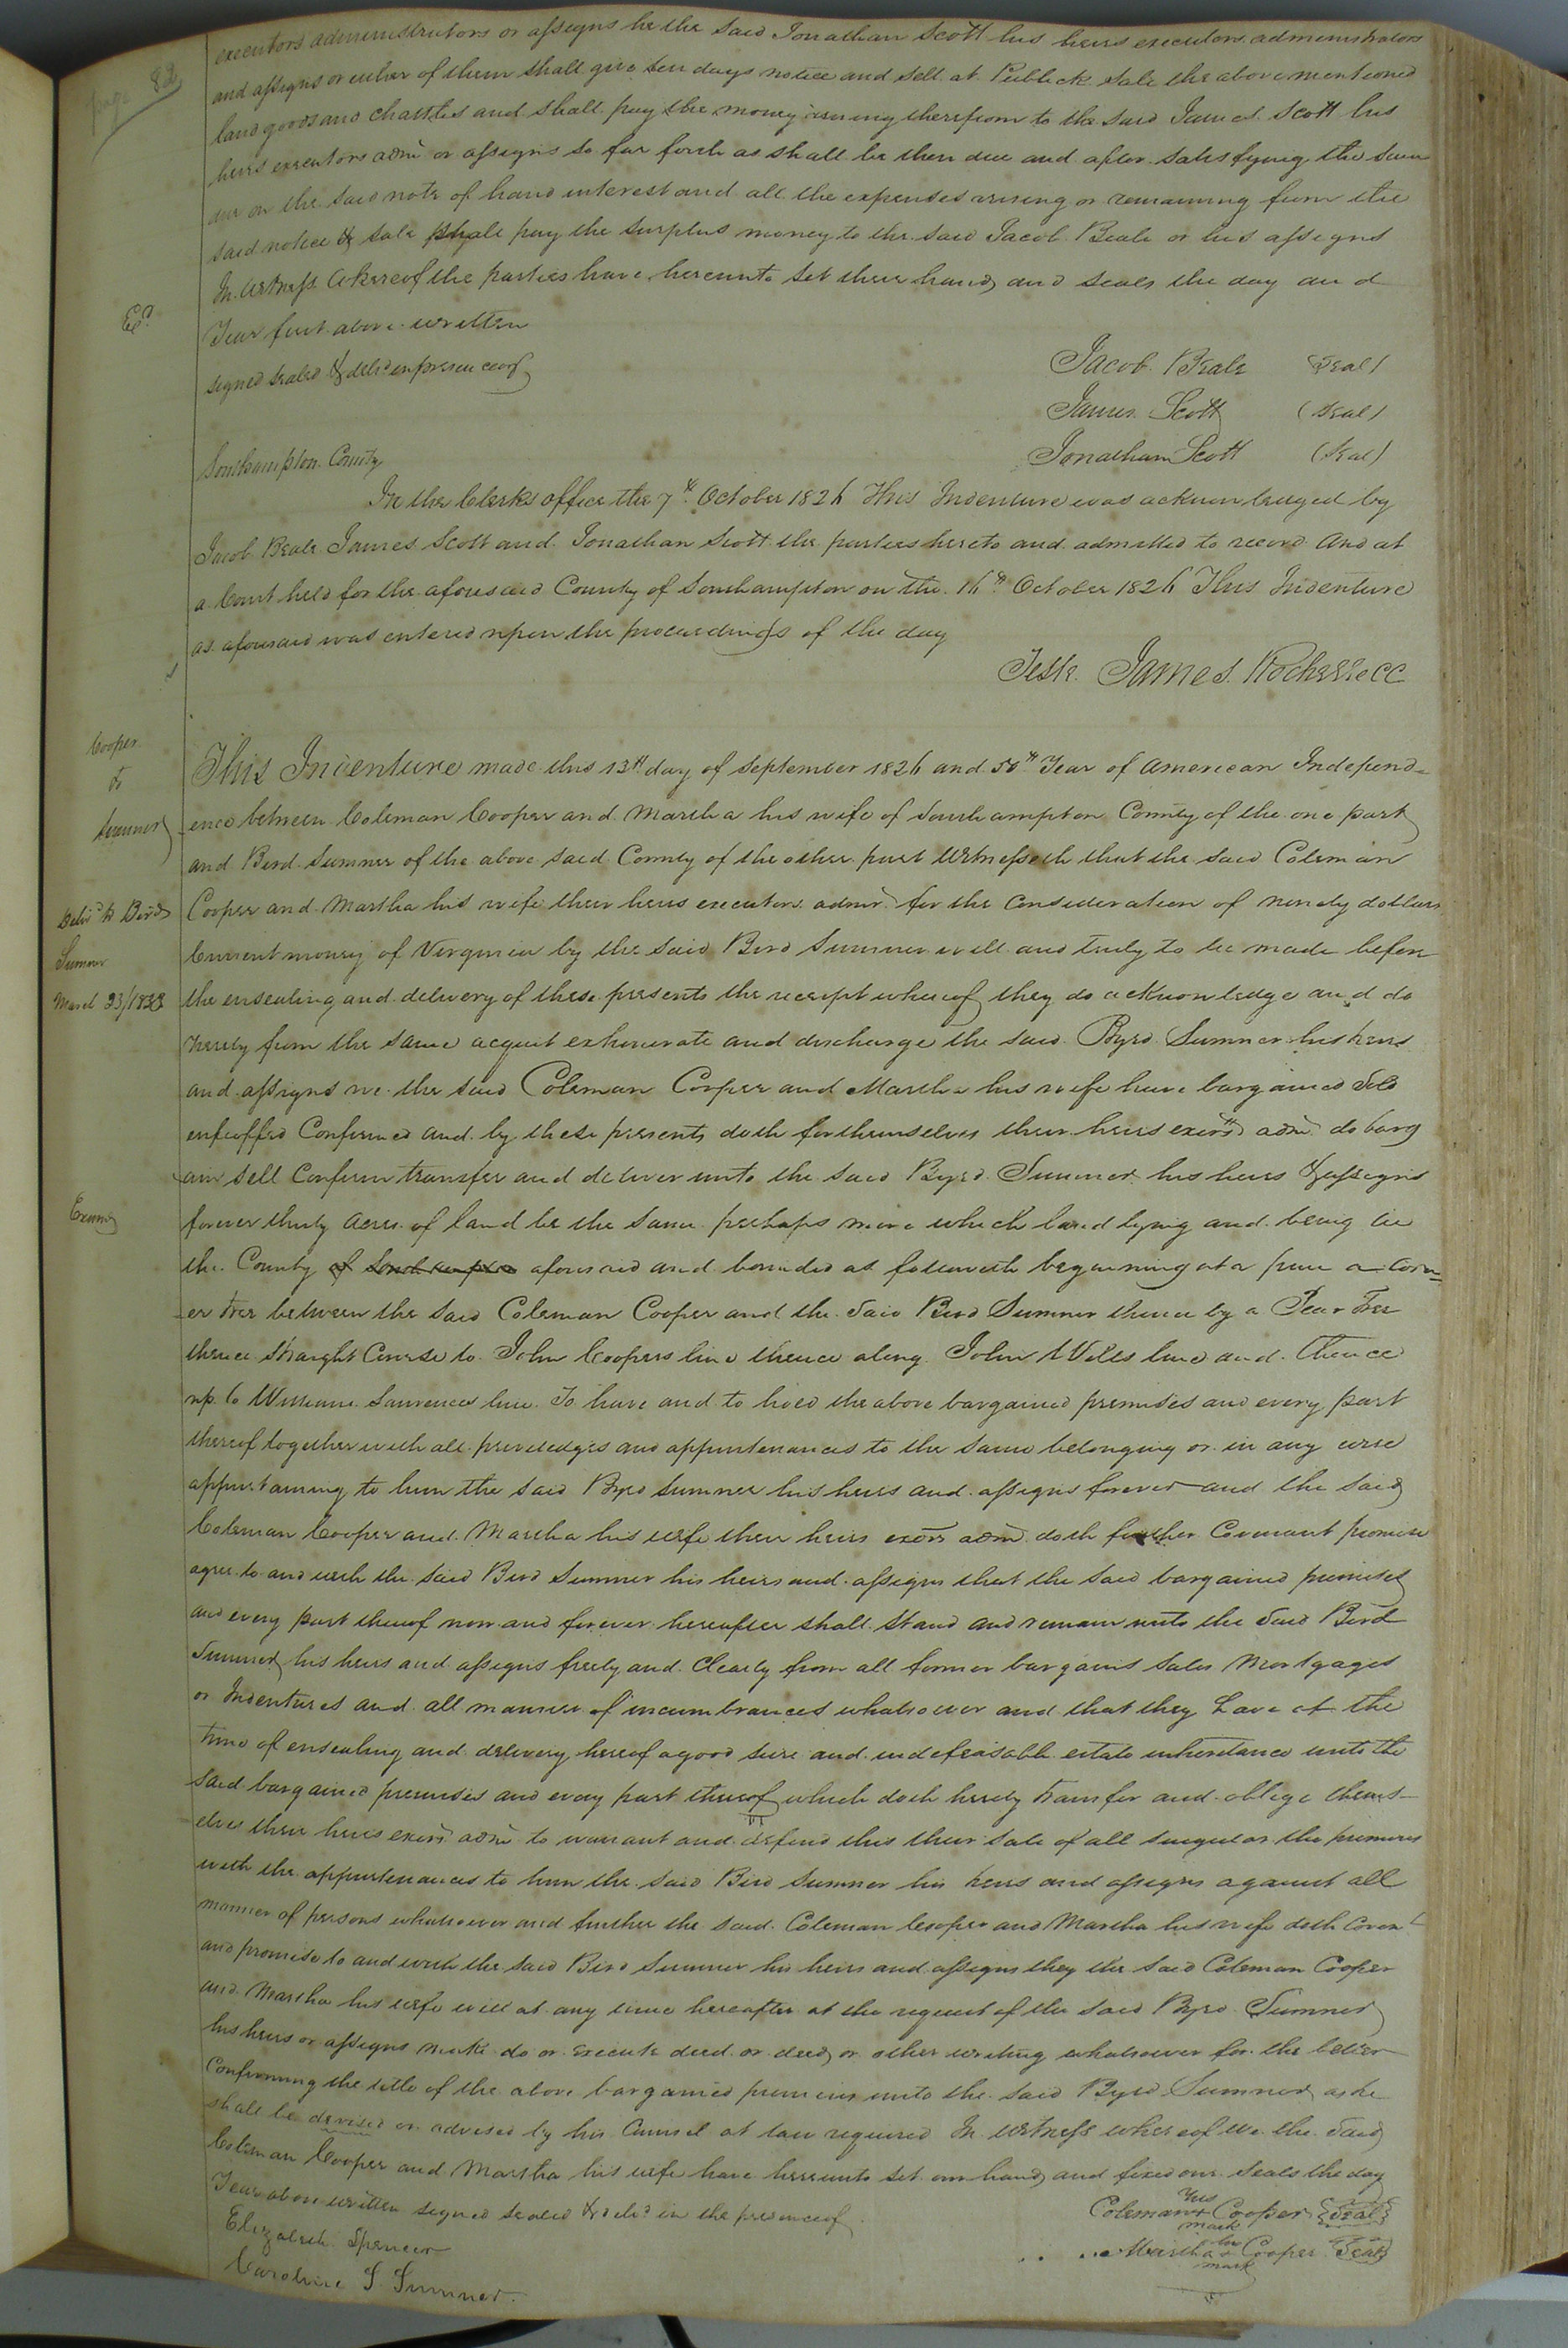 page 82
executors administrators or assigns he the said Jonathan Scott his heirs executors administrators
and assigns or either of them shall give ten days notice and sell at Publick sale the above mentioned
land goods and chattles and shall pay the money arising therefrom to the said James Scott his
heirs executors adm̅ or assigns so far forth as shall be then due and after satisfying the sum
due on the said note of hand interest and all the expenses arising or remaining from the
said notice & sale shall pay the surplus money to the said Jacob Beale or his assigns
In witness whereof the parties have hereunto set their hands and seals the day and
Ex.d
Year first above written
signed sealed & deld in presence of
Jacob Beale (Seal)
James Scott (Seal)
Jonathan Scott (Seal)
Southampton County
In the Clerks office the 7th October 1826 This Indenture was acknowledged by
Jacob Beale James Scott and Jonathan Scott the parties hereto and admitted to record And at
a Court held for the aforesaid County of Southampton on the 16th October 1826 This Indenture
as aforesaid was entered upon the proceedings of the day
Teste James Rochelle cc
Cooper
to
Sumner
This Indenture made this 13th day of September 1826 and 50th Year of American Independ-
ence between Coleman Cooper and Martha his wife of Southampton County of the one part
and Bird Sumner of the above said County of the other part Witnesseth that the said Coleman
Deliv.d to Bird
Sumner
March 23/1833
Cooper and Martha his wife their heirs executors admr for the consideration of ninety dollars
Current money of Virginia by the said Bird Sumner well and truly to be made before
the ensealing and delivery of these presents the receipt whereof they do acknowledge and do
hereby from the same acquit exhonerate and discharge the said Byrd Sumner his heirs
and assigns we the said Coleman Cooper and Martha his wife have bargained Sold
enfeoffed Confirmed and by these presents doth for themselves their heirs exors adm̅ do barg
ain sell Confirm transfer and deliver unto the said Byrd Sumner his heirs & assigns
Exam.d
forever thirty acres of land be the same perhaps more which land lying and being in
the County of Southampton aforesaid and bounded as followeth beginning at a pine a corn-
er tree between the said Coleman Cooper and the said Bird Sumner thence by a Pear Tree
thence straight Course to John Coopers line thence along John Wells line and thence
up to William Lawrences line To have and to hold the above bargained premises and every part
thereof together with all priviledges and appurtenances to the same belonging or in any wise
appurtaining to him the said Byrd Sumner his heirs and assigns forever and the said
Coleman Cooper and Martha his wife their heirs exors adm̅ doth further Covenant promise
agree to and with the said Bird Sumner his heirs and assigns that the said bargained premises
and every part thereof now and forever hereafter shall stand and remain unto the said Bird
Sumner his heirs and assigns freely and Clearly from all former bargains sales Mortgages
or Indentures and all manner of incumbrances whatsoever and that they have at the
time of ensealing and delivery hereof a good sure and indefeasable estate inheritance unto the
said bargained premises and every part thereof which doth hereby transfer and oblige thems-
elves their heirs exors adm̅ to warrant and defend this their sale of all singular the premises
with the appurtenances to him the said Bird Sumner his heirs and assigns against all
manner of persons whatsoever and further the said Coleman Cooper and Martha his wife doth Covent
and promise to and with the said Bird Sumner his heirs and assigns they the said Coleman Cooper
and Martha his wife will at any time hereafter at the request of the said Byrd Sumner
his heirs or assigns make do or execute deed or deeds or other writing whatsoever for the better
Confirming the title of the above bargained premises unto the said Byrd Sumner as he
shall be devised or advised by his Counsel at law required In witness whereof we the said
Coleman Cooper and Martha his wife have hereunto set our hands and fixed our Seals the day
Year above written signed sealed & deld in the presence of
Elizabeth Spencer
Caroline S Sumner
his
Coleman + Cooper {Seal}
mark
her
Martha + Cooper {Seal}
mark